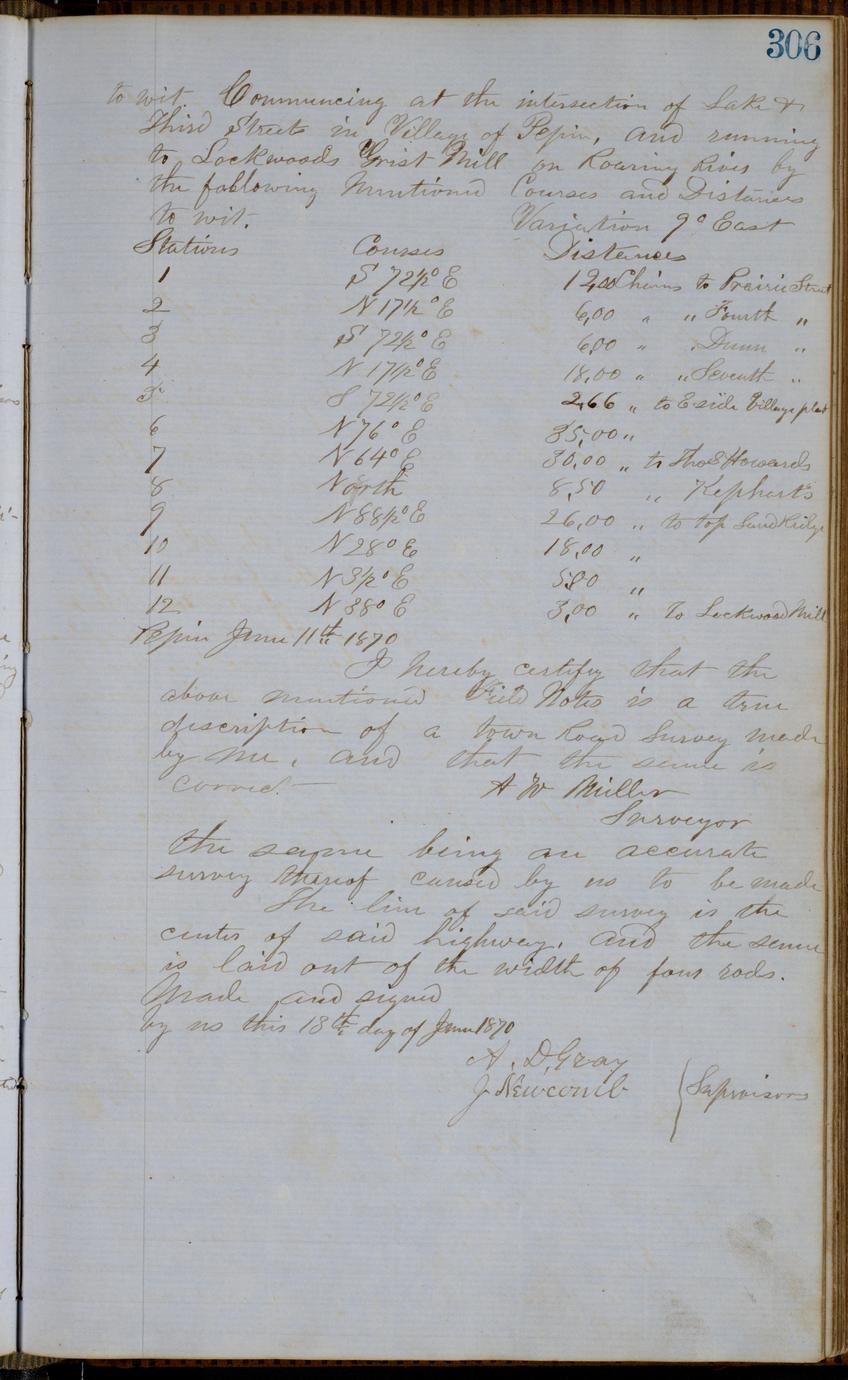 306
to wit. Commencing at the intersection of Lake &
Third Streets in Village of Pepin, and running
to Lockwoods Grist Mill on Roaring River by
the following mentioned Courses and Distances
to wit. Variation 9° East
Stations Courses Distances
1 S 72½° E 12,00 Chains to Prairie Street
2 N 17½° E 6,00 „ „ Fourth „
3 S 72½° E 6,00 „ „ Dunn „
4 N 17½° E 18,00 „ „ Seventh „
5 S 72½° E 2,66 „ to E side Village plat
6 N 76° E 35,00 „
7 N 64° E 30,00 „ to Thos Howards
8 North 8,50 „ Kepharts
9 N 88½° E 26,00 „ to top Sand Ridge
10 N 28° E 18,00 „
11 N 3½° E 5,00 „
12 N 38° E 3,00 „ to Lockwood Mill
Pepin June 11th 1870
I hereby certify that the
above mentioned Field Notes is a true
description of a town Road Survey made
by me, and that the same is
correct. A W Miller
Surveyor
the same being an accurate
survey thereof caused by us to be made
The line of said survey is the
center of said highway, and the same
is laid out of the width of four rods.
Made and signed
by us this 18th day of June 1870
A. D. Gray
J Newcomb } Supervisors